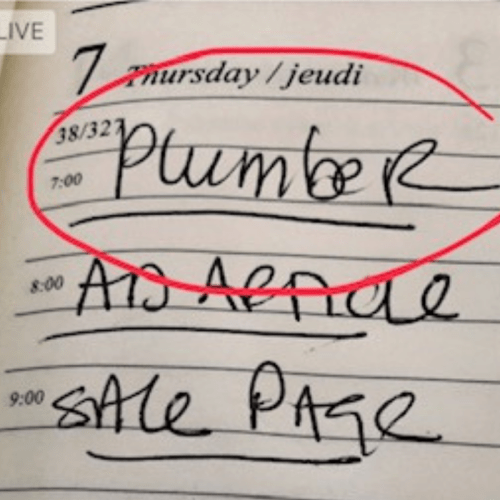 LIVE
7 Thursday / jeudi
38/327
7:00 PlumbeR
8:00 AD ARTICle
9:00 SAle PAge